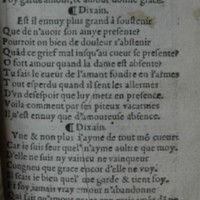 ¶Dixain.
Est il ennuy plus grand à soustenir
Que de n'auoir son amye presente?
Pourroit on bien de douleur s'absente
Quãd ce grief mal iusqu'au cueur se presente?
O fort amour quand la dame est absente
Tu fais le cueur de l'amant fondre en l'armes
Tout esperdu quand il sent les allarmes
D'vn desespoir que luy metz en presence.
Voila comment par ses piteux vacarmes
Il n'est ennuy que d'amoureuse absence.
¶Dixain.
Vue & non plus l'ayme de tout mõ cueur
Car ie suis seur quel' n'ayme autre que moy.
D'elle ne suis ny vaincu ne vainqueur
congneu que grace encor d'elle ne voy.
le scay le bien quel' me garde & tient foy.
foy, iamais vray amour n'abandonne